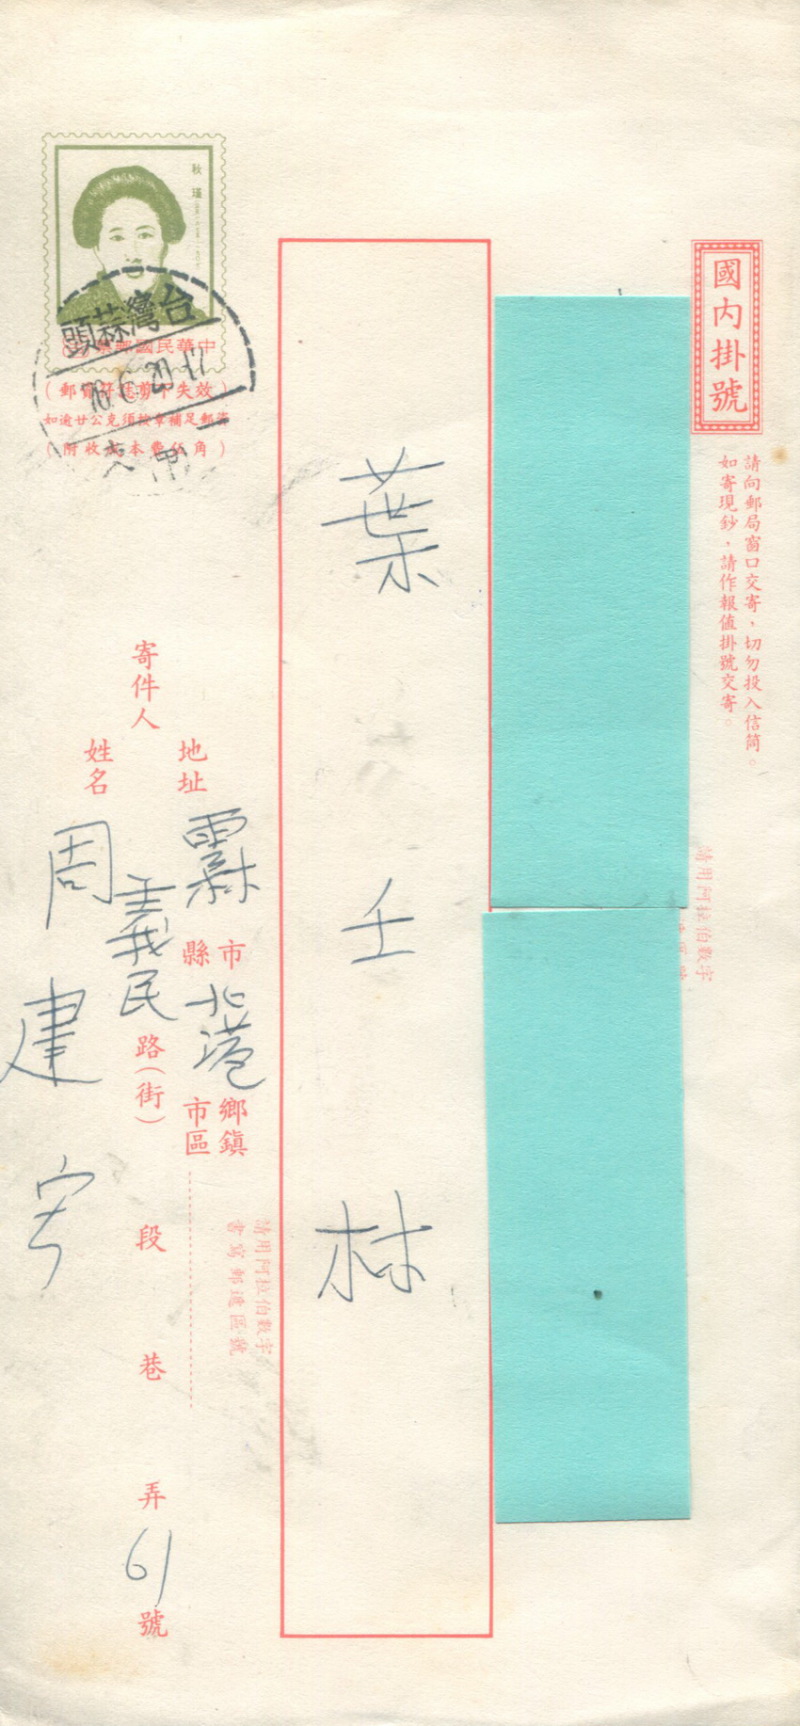 國內掛號
請向郵局窗口交寄，切勿投入信筒。
如寄現鈔，請作報值掛號交寄。
請用阿拉伯數字
葉壬林
秋瑾
中華民國郵票
台灣蒜頭
76.6.20.17
甲
(郵資符誌剪下失效)
如逾廿公克須按章補足郵資
(附收成本費伍角)
寄件人
地址
雲林
縣市
北港
鄉鎮
市區
請用阿拉伯數字
書寫郵遞區號
義民路(街)
段
巷
弄
61號
姓名
周建宇